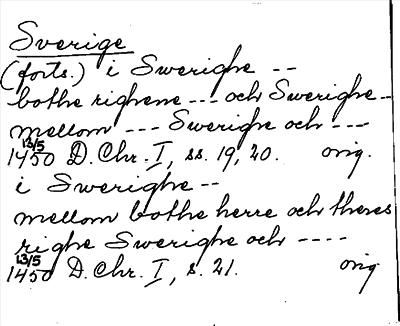 Sverige
(forts.) i Swerighe --
bothe righene --- och Swerighe --
mellom --- Swerighe och ---
13/5
1450 D. Chr. I, ss. 19, 20. orig.
i Swerighe --
mellom bothe herre och theres
righe Swerighe och ----
13/5
1450 D. Chr. I, s. 21. orig